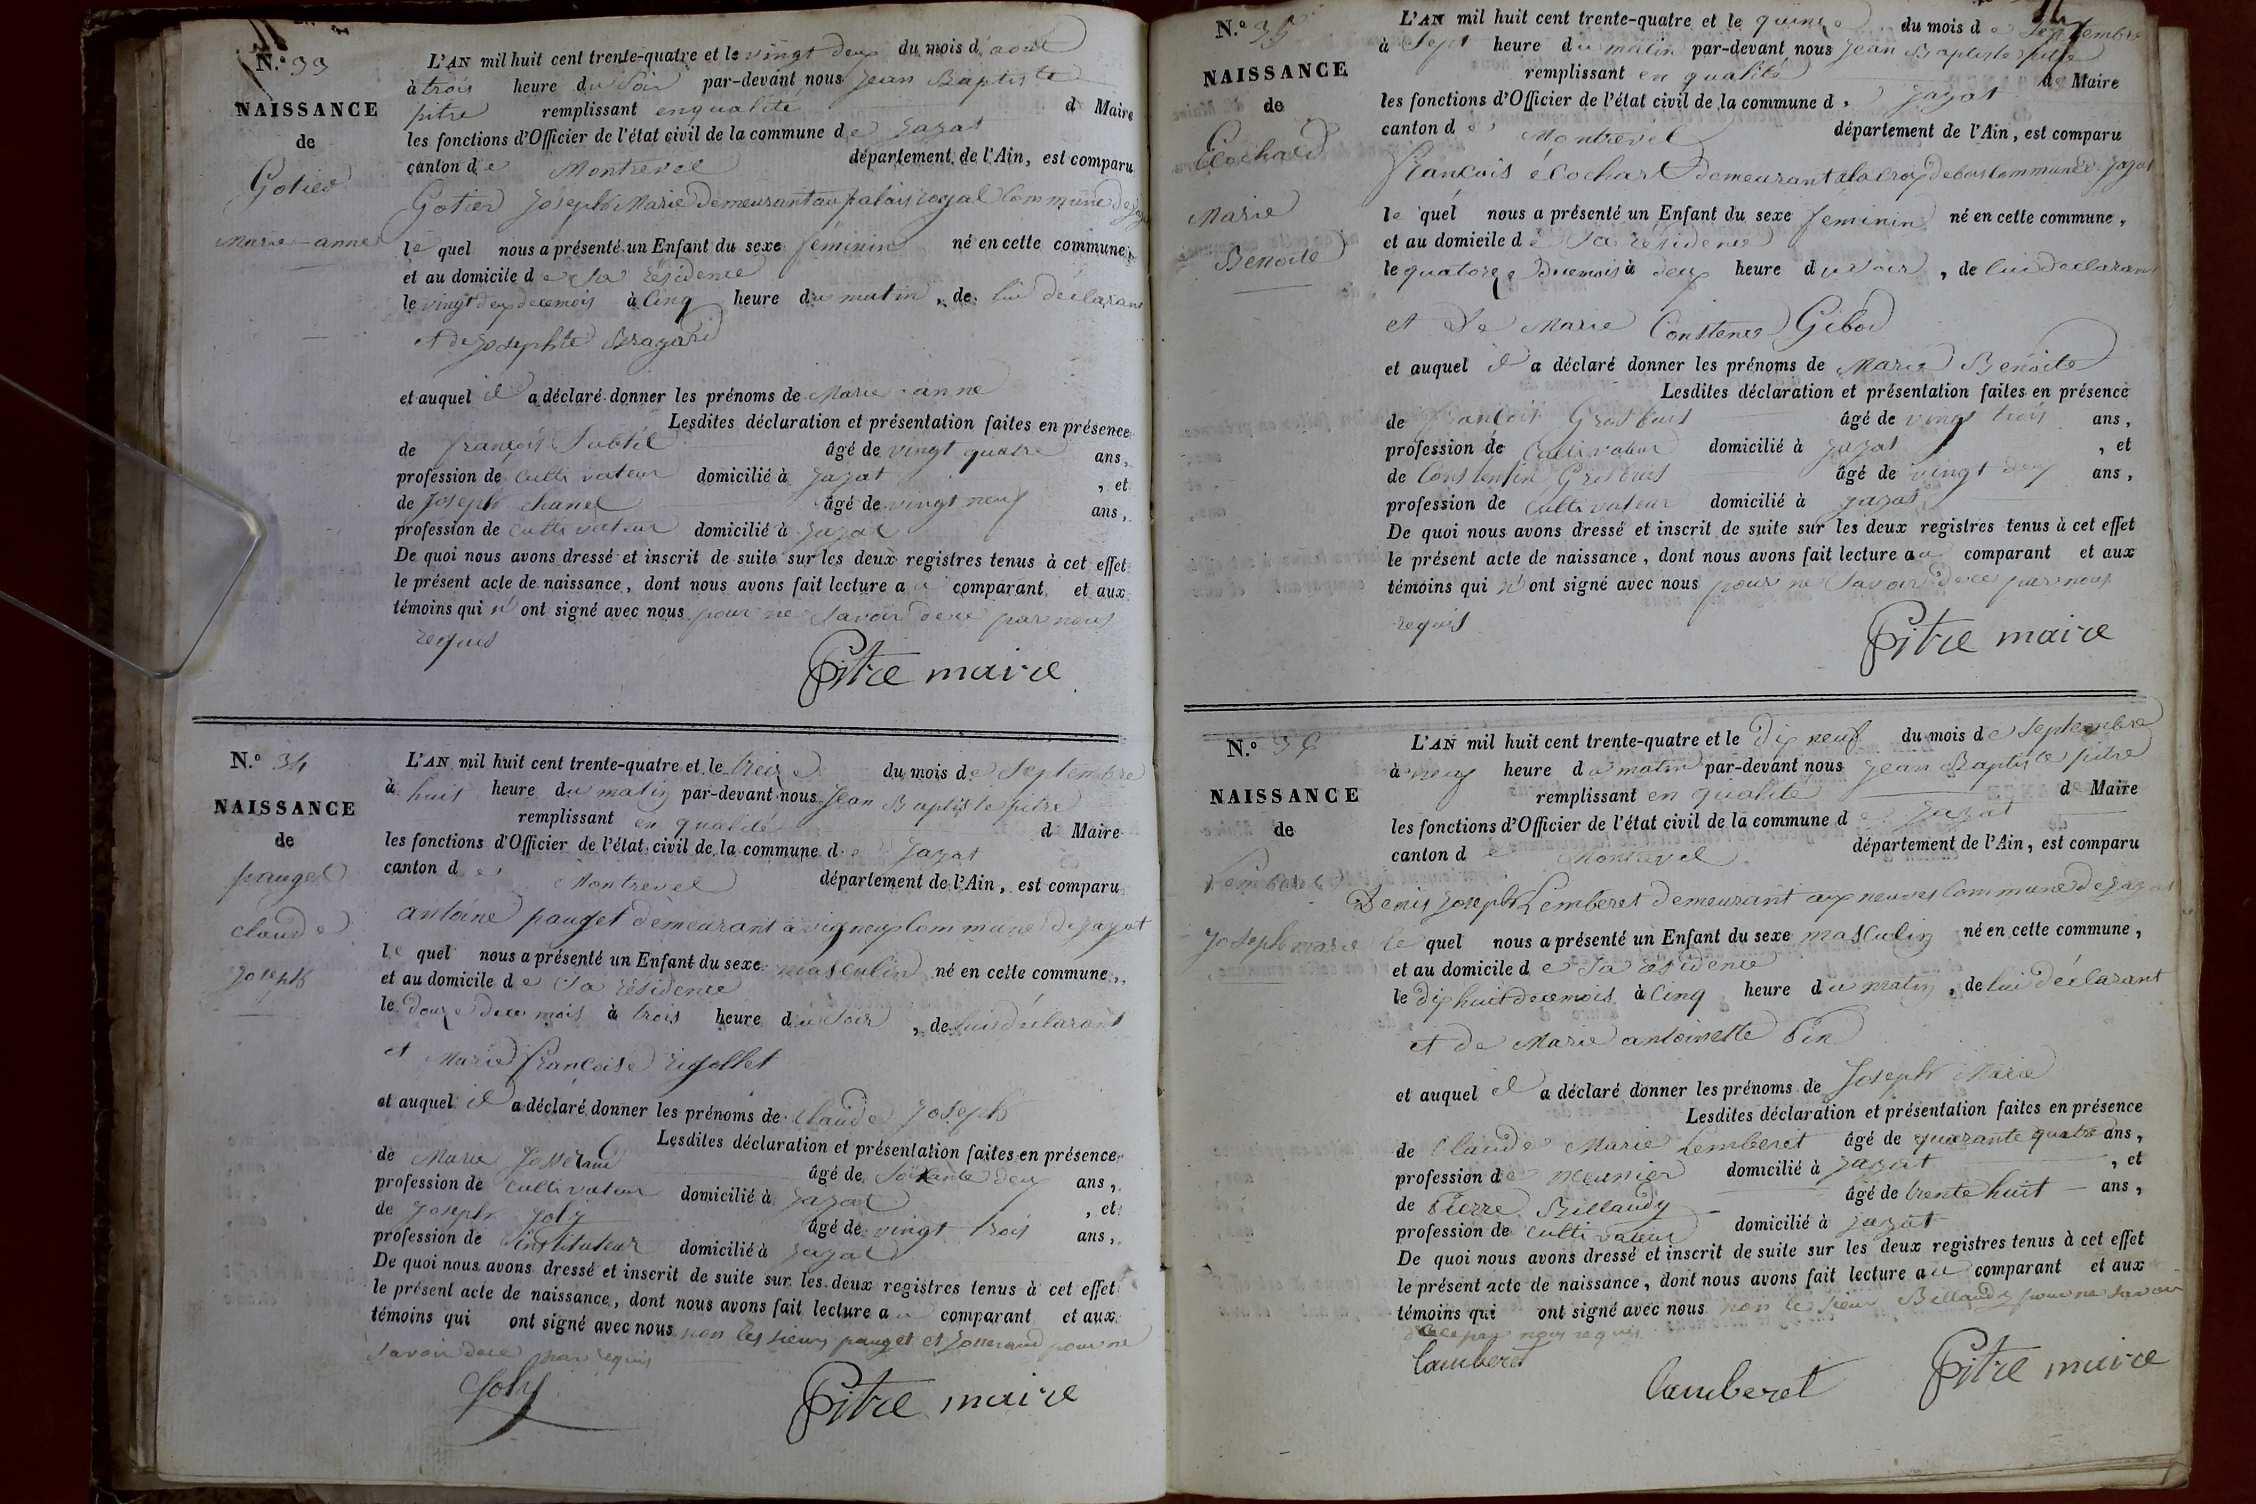 N.º 33
NAISSANCE
de
Gotier
Marie-anne
L'AN mil huit cent trente-quatre et le vingt deux du mois d'aout
à trois heure du Soir par-devant nous Jean Baptiste
pitre remplissant en qualité d Maire
les fonctions d'Officier de l'état civil de la commune de jayat
canton de Montrevel département de l'Ain, est comparu
Gotier Joseph Marie demeurant au palais royal Commune de jayat
le quel nous a présenté un Enfant du sexe féminin né en cette commune,
et au domicile de sa résidence
le vingt deux de ce mois à Cinq heure du matin, de lui déclarant
et de josephte Bragard
et auquel il a déclaré donner les prénoms de Marie-anne
Lesdites déclaration et présentation faites en présence
de françois Subtil âgé de vingt quatre ans,
profession de cultivateur domicilié à jayat, et
de Joseph chanel âgé de vingt neuf ans,
profession de cultivateur domicilié à jayat
De quoi nous avons dressé et inscrit de suite sur les deux registres tenus à cet effet
le présent acte de naissance, dont nous avons fait lecture au comparant et aux
témoins qui n'ont signé avec nous pour ne Savoir de ce par nous
requis
Pitre maire
N.º 34
NAISSANCE
de
pauget
claude
Joseph
L'AN mil huit cent trente-quatre et le treize du mois de Septembre
à huit heure du matin par-devant nous Jean Baptiste pitre
remplissant en qualité d Maire
les fonctions d'Officier de l'état civil de la commune de jayat
canton de Montrevel département de l'Ain, est comparu
antoine pauget demeurant à vigneux Commune de jayat
le quel nous a présenté un Enfant du sexe masculin né en cette commune,
et au domicile de sa résidence
le douze de ce mois à trois heure du Soir, de lui déclarant
et Marie françoise rigollet
et auquel il a déclaré donner les prénoms de claude Joseph
Lesdites déclaration et présentation faites en présence
de Marie Josserand âgé de Soixante deux ans,
profession de cultivateur domicilié à jayat, et
de Joseph Joly âgé de vingt trois ans,
profession de instituteur domicilié à jayat
De quoi nous avons dressé et inscrit de suite sur les deux registres tenus à cet effet
le présent acte de naissance, dont nous avons fait lecture au comparant et aux
témoins qui ont signé avec nous non les sieurs pauget et Josserand pour ne
Savoir de ce par requis
Joly
Pitre maire
N.º 35
NAISSANCE
de
Ecochard
Marie
Benoite
L'AN mil huit cent trente-quatre et le quinze du mois de Septembre
à Sept heure du matin par-devant nous Jean Baptiste pitre
remplissant en qualité d Maire
les fonctions d'Officier de l'état civil de la commune de jayat
canton de Montrevel département de l'Ain, est comparu
françois écochart demeurant à la croix de bois Commune de jayat
le quel nous a présenté un Enfant du sexe feminin né en cette commune,
et au domicile de sa résidence
le quatorze du mois à deux heure du soir, de lui declarant
et de Marie Constence Gibod
et auquel il a déclaré donner les prénoms de Marie Benoite
Lesdites déclaration et présentation faites en présence
de françois Grosbuis âgé de vingt trois ans,
profession de cultivateur domicilié à jayat, et
de Constentin Grosbuis âgé de vingt deux ans,
profession de cultivateur domicilié à jayat
De quoi nous avons dressé et inscrit de suite sur les deux registres tenus à cet effet
le présent acte de naissance, dont nous avons fait lecture au comparant et aux
témoins qui n'ont signé avec nous pour ne Savoir de ce par nous
requis
Pitre maire
N.º 36
NAISSANCE
de
Lemberet
Joseph marie
L'AN mil huit cent trente-quatre et le dix neuf du mois de septembre
à neuf heure du matin par-devant nous jean Baptiste pitre
remplissant en qualité d Maire
les fonctions d'Officier de l'état civil de la commune de jayat
canton de Montrevel département de l'Ain, est comparu
Denis joseph Lemberet demeurant aux neuves Commune de jayat
le quel nous a présenté un Enfant du sexe masculin né en cette commune,
et au domicile de sa résidence
le dix huit de ce mois à Cinq heure du matin, de lui déclarant
et de Marie antoinette Pin
et auquel il a déclaré donner les prénoms de Joseph Marie
Lesdites déclaration et présentation faites en présence
de Claude Marie Lemberet âgé de quarante quatre ans,
profession de meunier domicilié à jayat, et
de Pierre Billaudy âgé de trente huit ans,
profession de cultivateur domicilié à jayat
De quoi nous avons dressé et inscrit de suite sur les deux registres tenus à cet effet
le présent acte de naissance, dont nous avons fait lecture au comparant et aux
témoins qui ont signé avec nous non le sieur Billaudy pour ne savoir
de ce par nous requis
Lamberet
Lamberet
Pitre maire